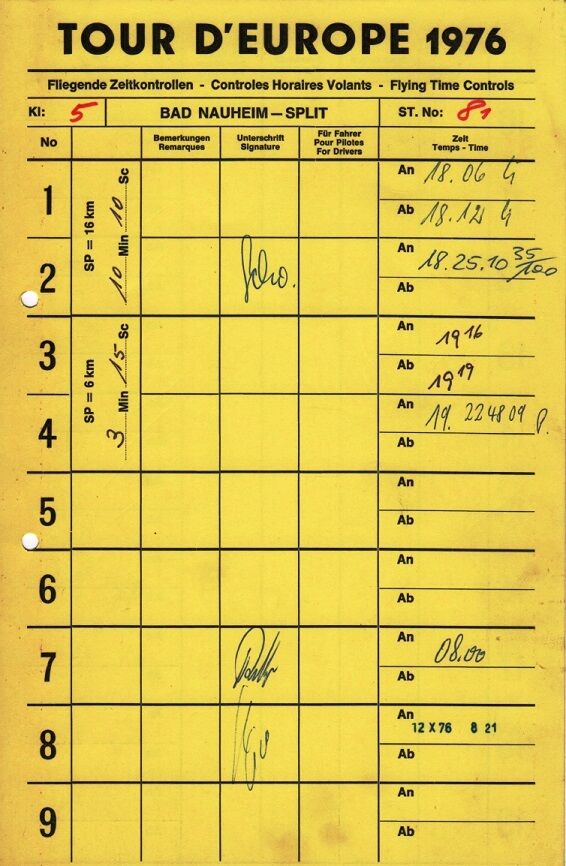 TOUR D'EUROPE 1976
Fliegende Zeitkontrollen - Controles Horaires Volants - Flying Time Controls
Kl: 5 BAD NAUHEIM – SPLIT ST. No: 81
No Bemerkungen Remarques Unterschrift Signature Für Fahrer Pour Pilotes For Drivers Zeit Temps - Time
1 SP = 16 km 10 Min 10 Sc An 18.06
Ab 18.12
2 An 18.25.10 35/100
Ab
3 SP = 6 km 3 Min 15 Sc An 19 16
Ab 19 19
4 An 19. 224809
Ab
5 An
Ab
6 An
Ab
7 An 08.00
Ab
8 An 12 X 76 8 21
Ab
9 An
Ab